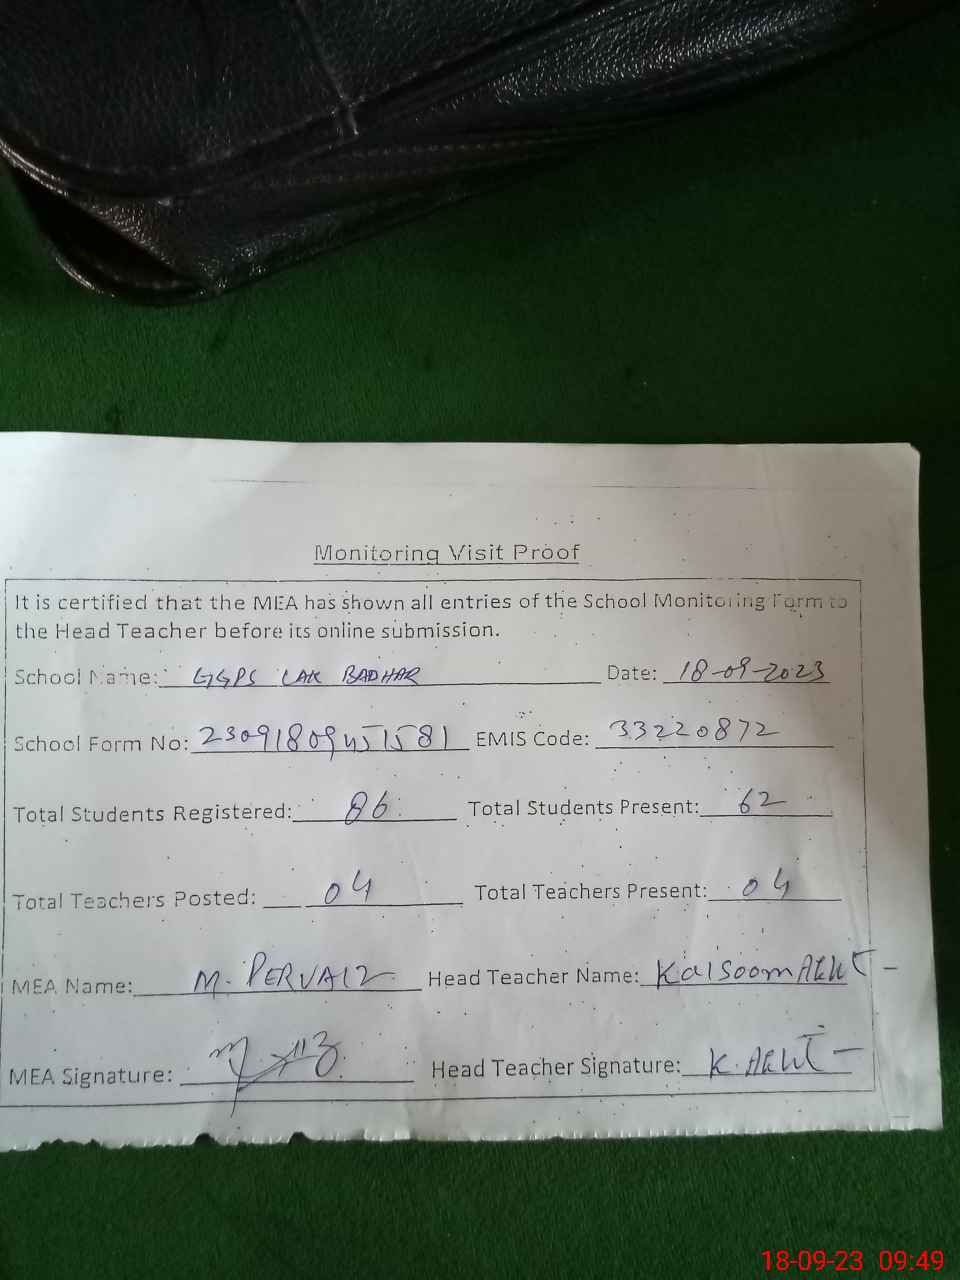 Monitoring Visit Proof
It is certified that the MEA has shown all entries of the School Monitoring Form to
the Head Teacher before its online submission.
School Name: GGPS LAK BADHAR Date: 18-09-2023
School Form No: 23091809451581 EMIS Code: 33220872
Total Students Registered: 86 Total Students Present: 62
Total Teachers Posted: 04 Total Teachers Present: 04
MEA Name: M. PERVAIZ Head Teacher Name: Kalsoom AKHT
MEA Signature: Head Teacher Signature: K. AKHT
18-09-23 09:49